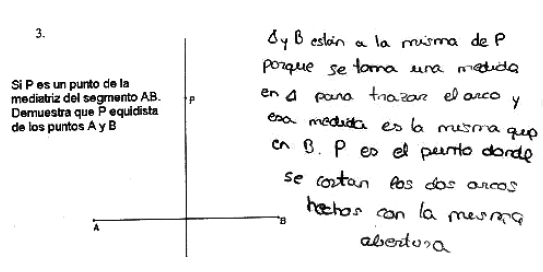 3.
Si P es un punto de la
mediatriz del segmento AB.
Demuestra que P equidista
de los puntos A y B
P
A
B
A y B están a la misma de P
porque se toma una medida
en A para trazar el arco y
esa medida es la misma que
en B. P es el punto donde
se cortan los dos arcos
hechos con la misma
abertura